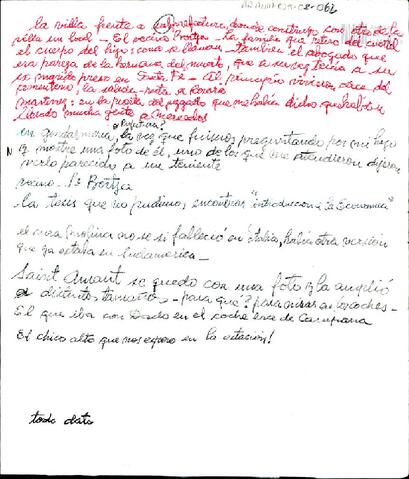 la villa frente a subprefectura, donde construyó con otra de la
villa un local - El vecino Bortza - la familia que retiró del cuartel
el cuerpo del hijo: como se llaman - también el abogado que
era pareja de la hermana del muerto, que a su vez tenía a su
ex marido preso en Santa Fé - Al principio vivieron cerca del
cementerio, la salida-ruta a Rosario
Martinez: en la puerta del juzgado que me había dicho que habían
llevado mucha gente a Mercedes
en Gendarmería, la vez que fuimos preguntando por mi hijo
y mostré una foto de él, uno de los que me atendieron dijeron
verlo parecido a un teniente
vecino - Sr Bortza
la tesis que no pudimos encontrar "introducción a la Economía"
el cura Molina no se si falleció en Italia, había otra versión
que ya estaba en Sudamérica -
Saint Amant se quedó con una foto y la amplió
a distintos tamaños - para qué? para mirar en los coches -
El que iba con Dado en el coche era de Campana
El chico alto que nos esperó en la estación!
todo dato